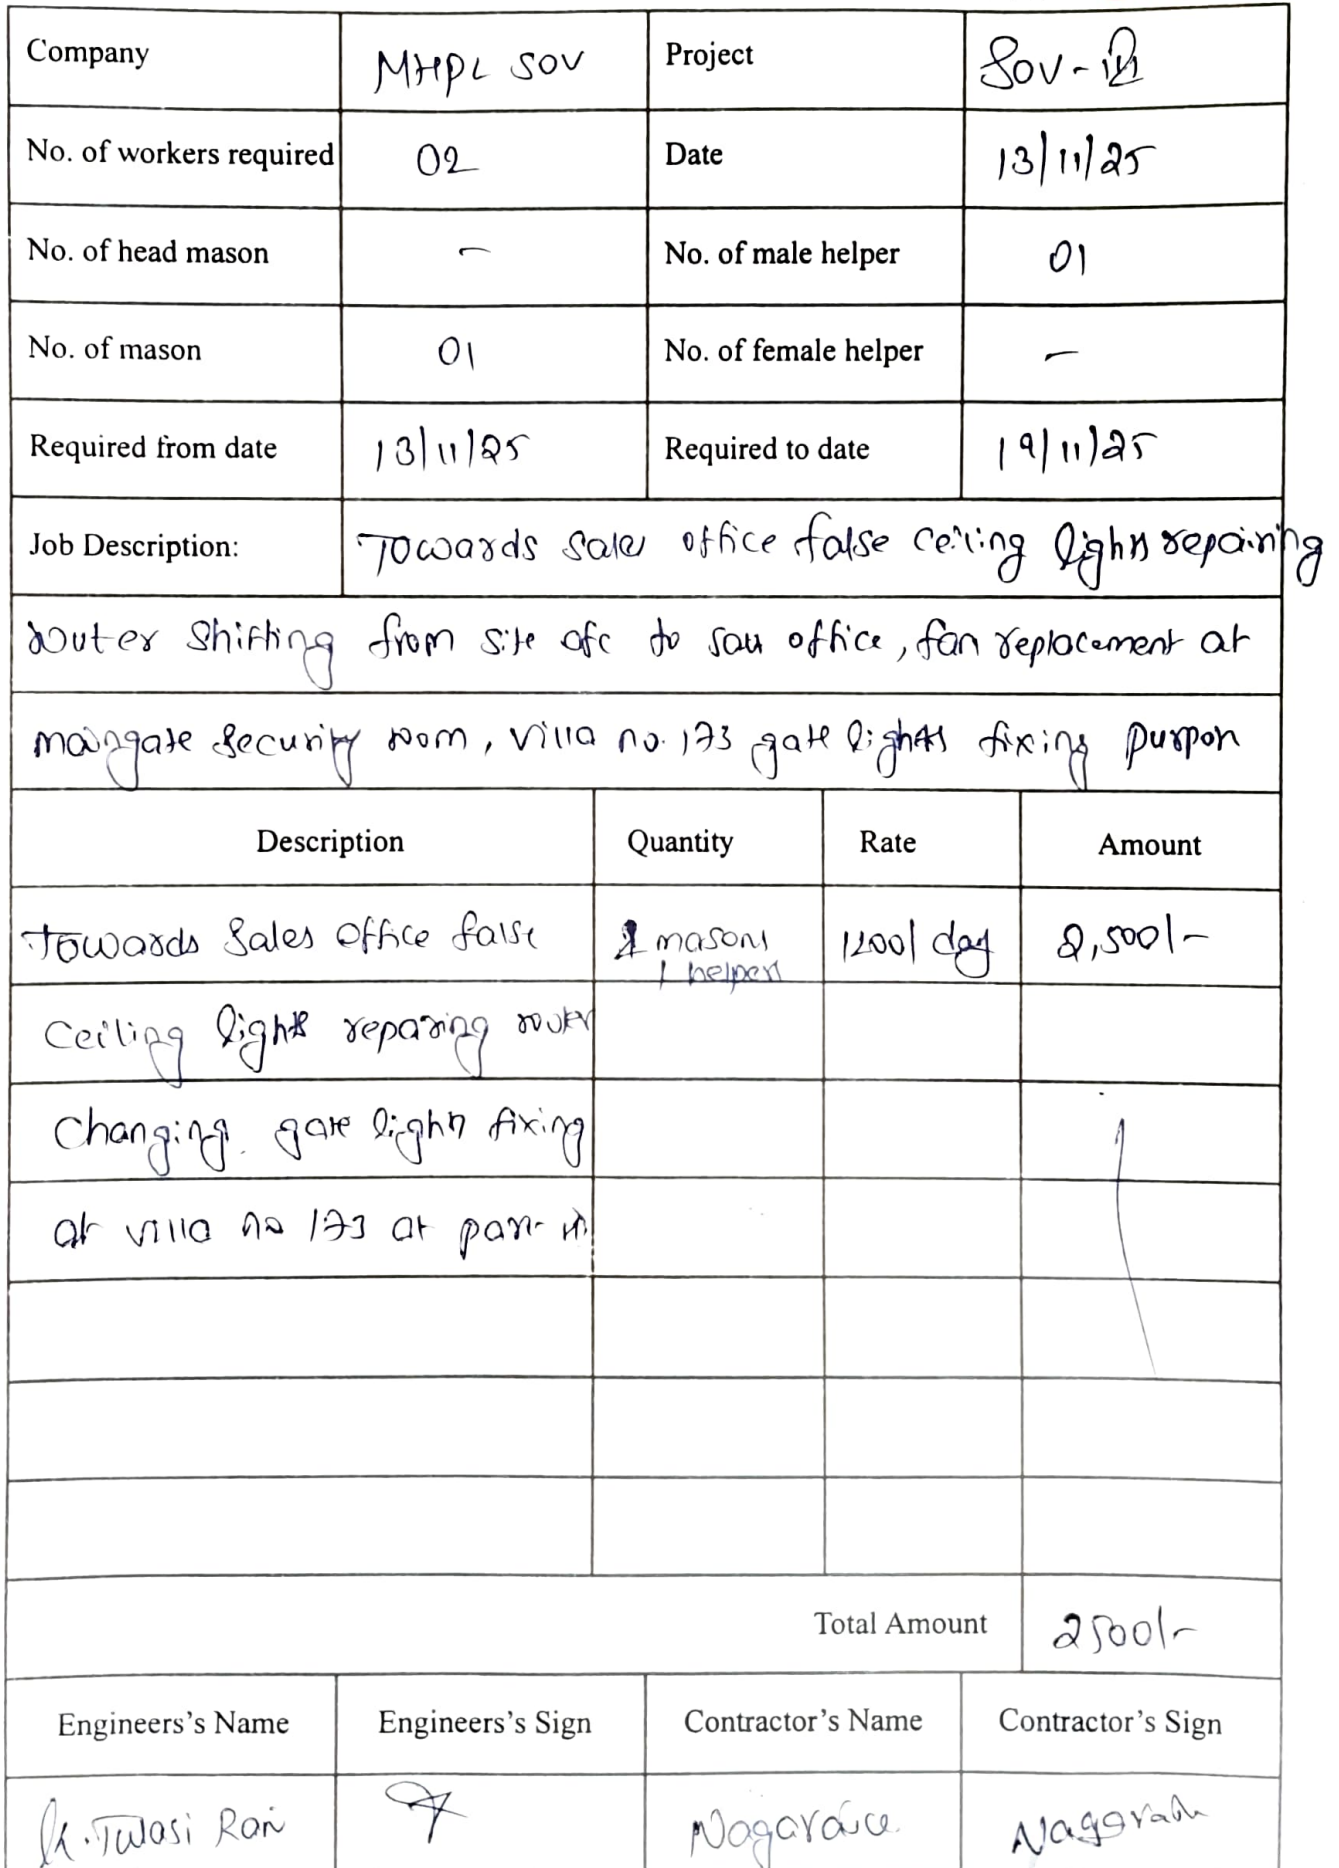 Company MHPL SOV Project SOV - III
No. of workers required 02 Date 13/11/25
No. of head mason - No. of male helper 01
No. of mason 01 No. of female helper -
Required from date 13/11/25 Required to date 19/11/25
Job Description: Towards Sales office false ceiling lights repairing
router shifting from site ofc to sales office, fan replacement at
maingate security room, villa no. 173 gate lights fixing purpose
Description Quantity Rate Amount
Towards Sales office false 1 masons 1200/ day 2,500/-
1 helper
Ceiling lights reparing router
Changing. gate lights fixing
at villa no 173 at part- III
Total Amount 2500/-
Engineers's Name Engineers's Sign Contractor's Name Contractor's Sign
K. Tulasi Ram